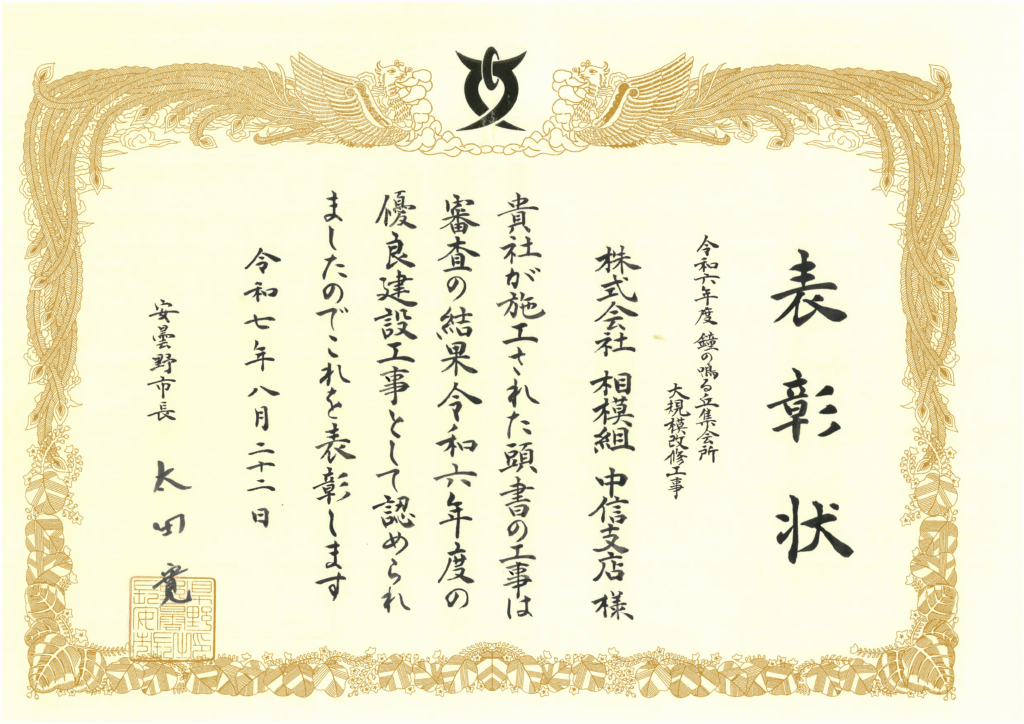 表彰状
令和六年度 鐘の鳴る丘集会所
大規模改修工事
株式会社 相模組 中信支店 様
貴社が施工された頭書の工事は
審査の結果令和六年度の
優良建設工事として認められ
ましたのでこれを表彰します
令和七年八月二十二日
安曇野市長 太田寛